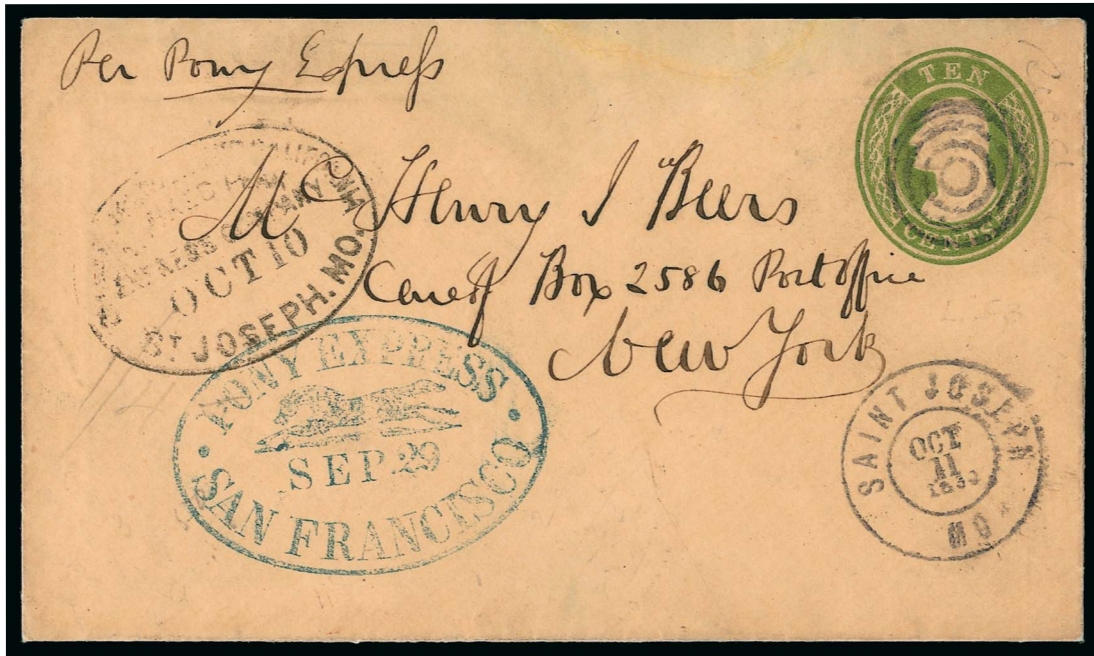 Per Pony Express
TEN
CENTS
EXPRESS COMPANY
OCT 10
ST JOSEPH. MO.
Mr Henry I Beers
Care of Box 2586 Post office
New York
PONY EXPRESS
SEP. 29
SAN FRANCISCO
SAINT JOSEPH
OCT
11
MO